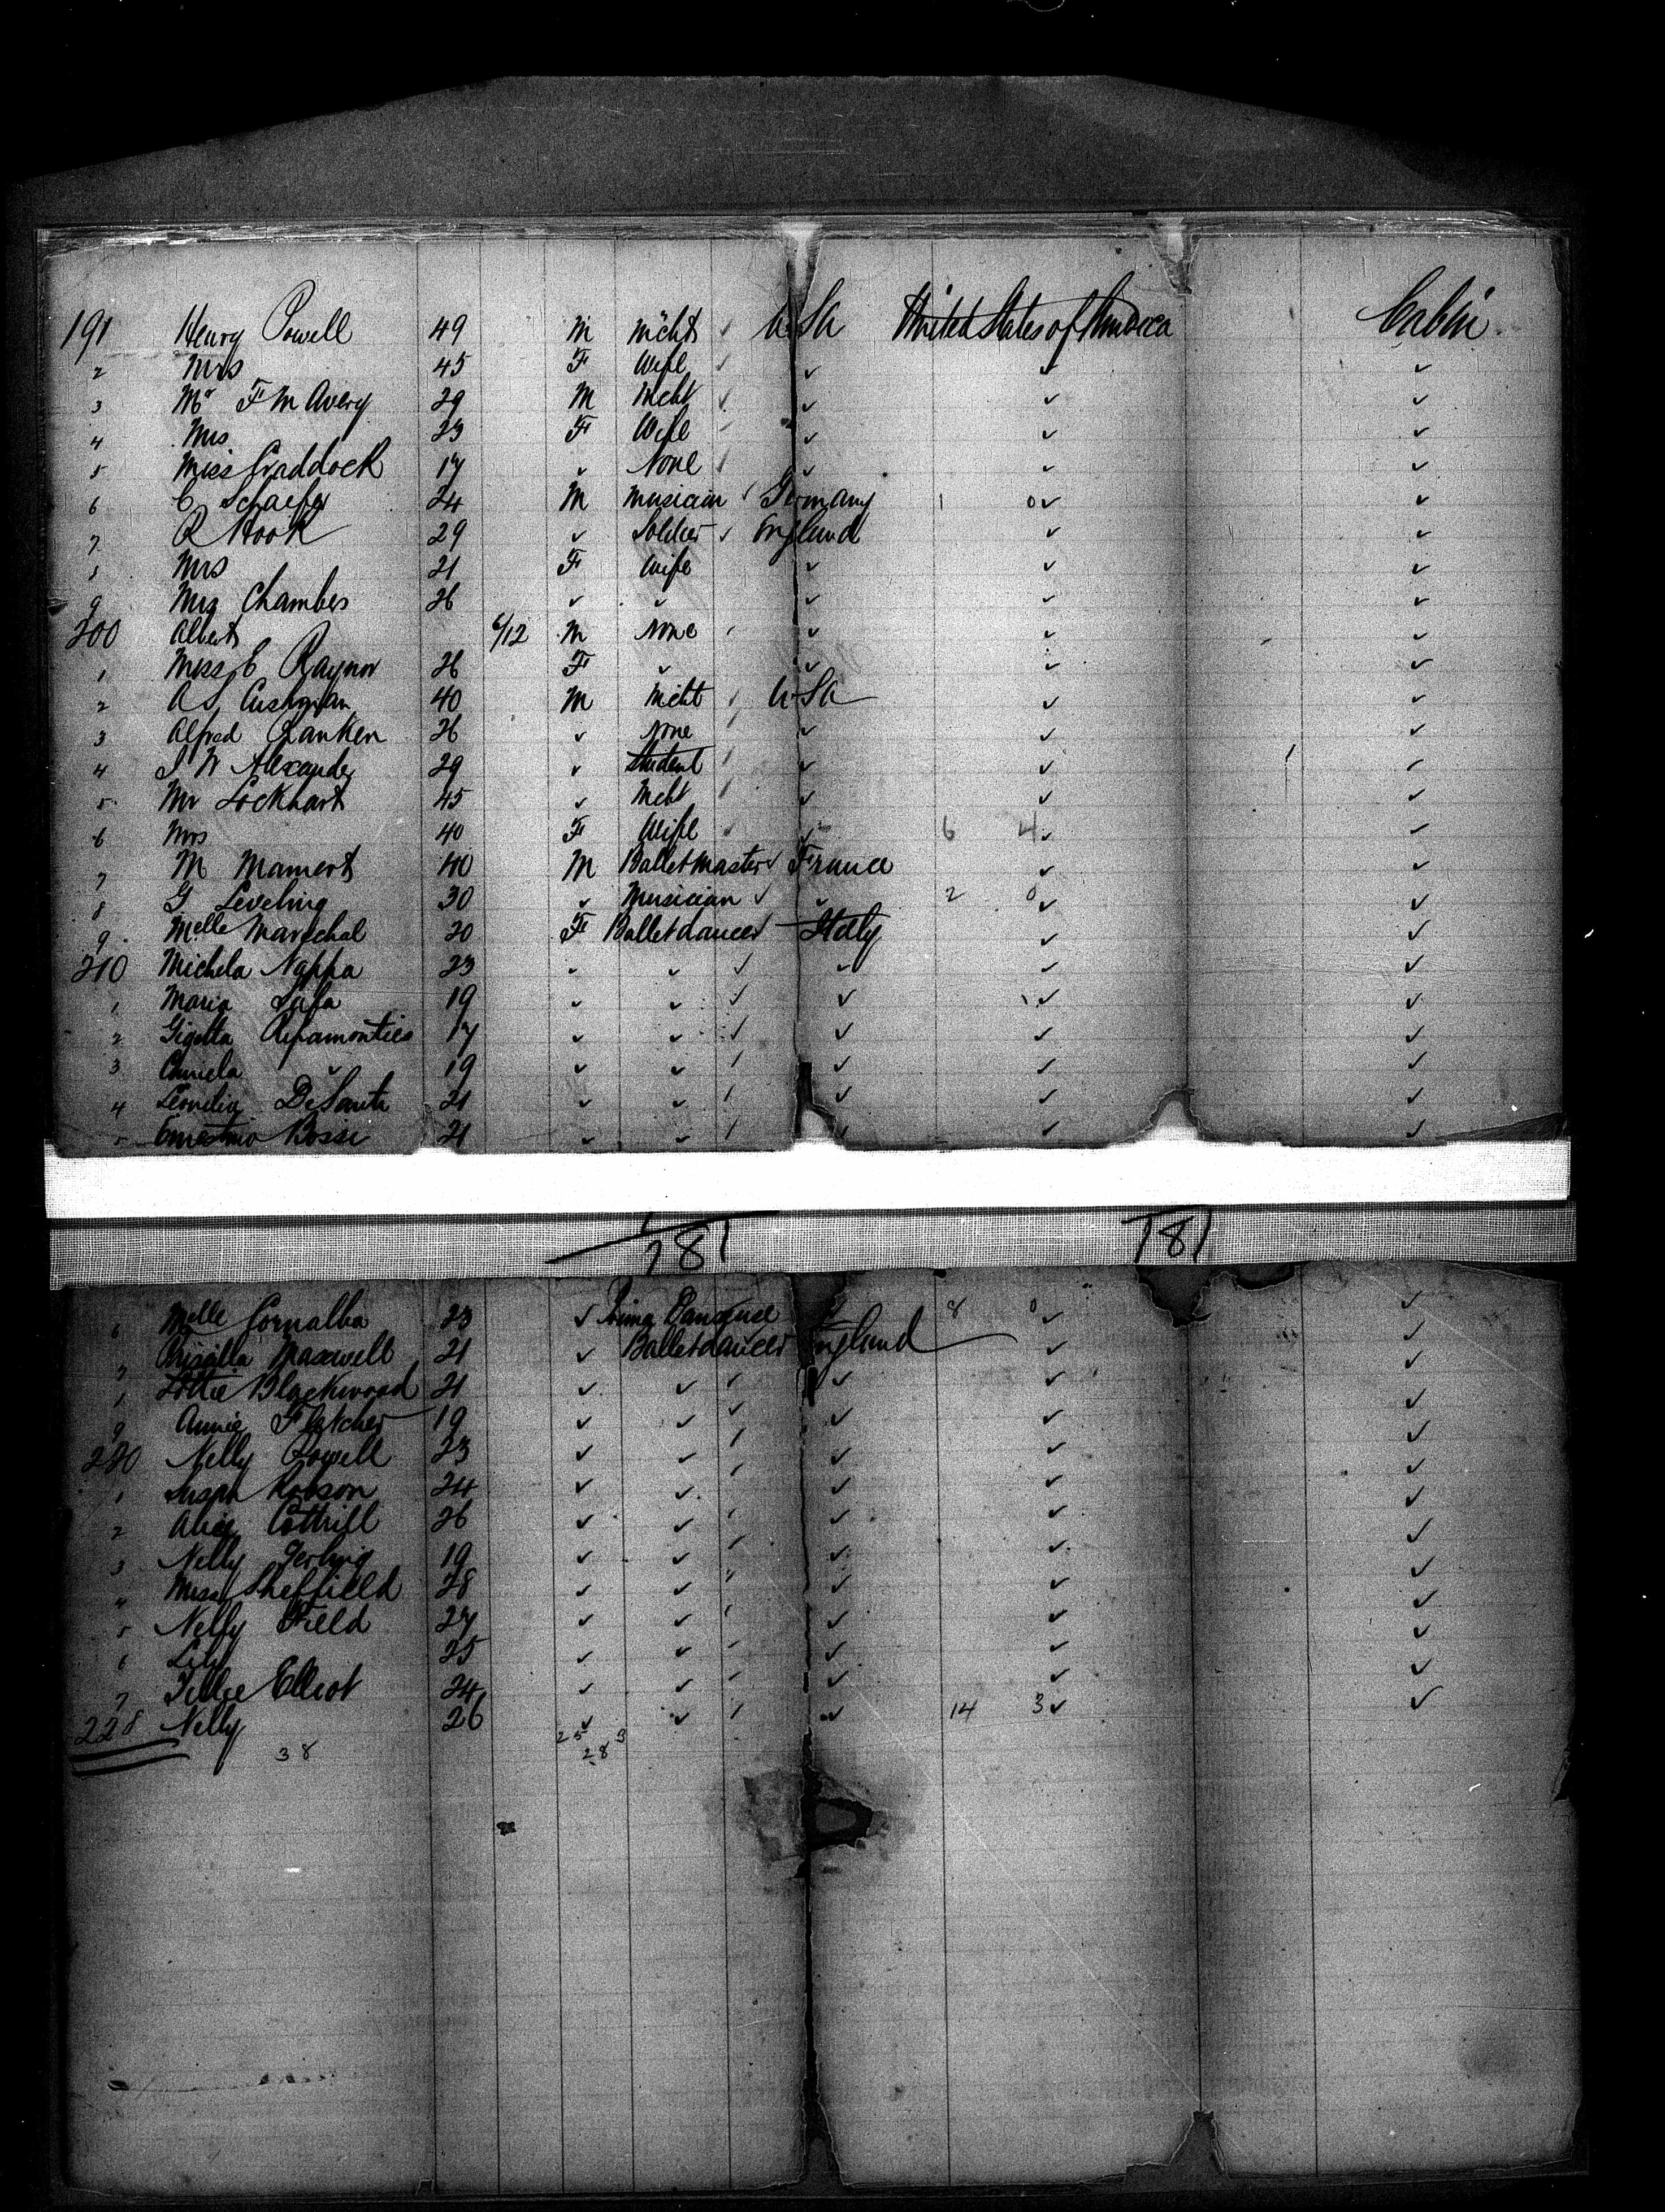 191 Henry Powell 49 M Mcht ✓ U.Sa United States of America Cabin
2 Mrs 45 F Wife ✓ ✓ ✓ ✓
3 Mr F M Avery 29 M Mcht ✓ ✓ ✓ ✓
4 Mrs 23 F Wife ✓ ✓ ✓ ✓
5 Miss Craddock 17 ✓ None ✓ ✓ ✓ ✓
6 C Schaefer 24 M Musician ✓ Germany 1 0 ✓ ✓
7 R Hook 29 ✓ Soldier ✓ England ✓ ✓
8 Mrs 21 F Wife ✓ ✓ ✓
9 Mrs Chambers 26 ✓ ✓ ✓ ✓ ✓
200 Albert 6/12 M None ✓ ✓ ✓ ✓
1 Miss E Raynor 26 F ✓ ✓ ✓ ✓
2 A S Cushman 40 M Mcht ✓ U-Sa ✓ ✓
3 Alfred Ranken 26 ✓ None ✓ ✓ ✓
4 J W Alexander 29 ✓ Student ✓ ✓ ✓ ✓
5 Mr Lockhart 45 ✓ Mcht ✓ ✓ ✓ ✓
6 Mrs 40 F Wife ✓ ✓ 6 4 ✓ ✓
7 M Mamert 40 M Ballet master ✓ France ✓ ✓
8 G Leveling 30 ✓ Musician ✓ ✓ 2 0 ✓ ✓
9 Melle Marechal 20 F Ballet dancer ✓ Italy ✓ ✓
210 Michela Nappa 23 ✓ ✓ ✓ ✓ ✓ ✓
1 Maria 19 ✓ ✓ ✓ ✓ ✓ ✓
2 Gigetta 17 ✓ ✓ ✓ ✓ ✓ ✓
3 ✓ 19 ✓ ✓ ✓ ✓ ✓ ✓
4 De Santi 21 ✓ ✓ ✓ ✓ ✓ ✓
5 Rossi 21 ✓ ✓ ✓ ✓ ✓ ✓
181 181
6 Melle Cornalba 23 ✓ Prima Danseuse 8 0 ✓ ✓
7 Priscilla Maxwell 21 ✓ Ballet dancer England ✓ ✓
8 Lottie Blackwood 21 ✓ ✓ ✓ ✓ ✓ ✓
9 Annie Fletcher 19 ✓ ✓ ✓ ✓ ✓ ✓
220 Nelly Powell 23 ✓ ✓ ✓ ✓ ✓ ✓
1 Susan Robson 24 ✓ ✓ ✓ ✓ ✓ ✓
2 Alice Cottrill 26 ✓ ✓ ✓ ✓ ✓ ✓
3 Nelly 19 ✓ ✓ ✓ ✓ ✓ ✓
4 Miss Sheffield 28 ✓ ✓ ✓ ✓ ✓ ✓
5 Nelly Field 27 ✓ ✓ ✓ ✓ ✓ ✓
6 Lily 25 ✓ ✓ ✓ ✓ ✓ ✓
7 Elliot 24 ✓ ✓ ✓ ✓ ✓ ✓
228 Nelly 26 ✓ ✓ ✓ ✓ 14 3 ✓ ✓
38 25 3
28